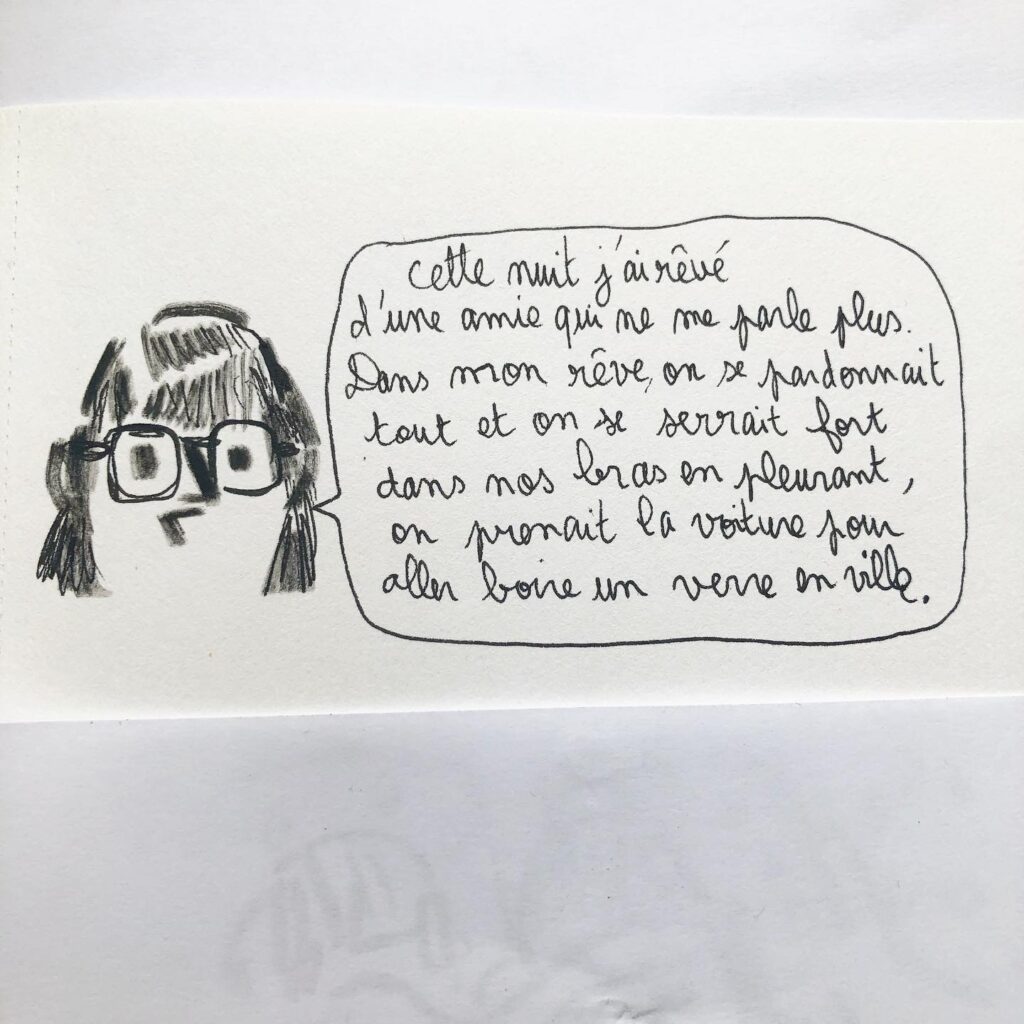 Cette nuit j'ai rêvé
d'une amie qui ne me parle plus.
Dans mon rêve, on se pardonnait
tout et on se serrait fort
dans nos bras en pleurant,
on prenait la voiture pour
aller boire un verre en ville.